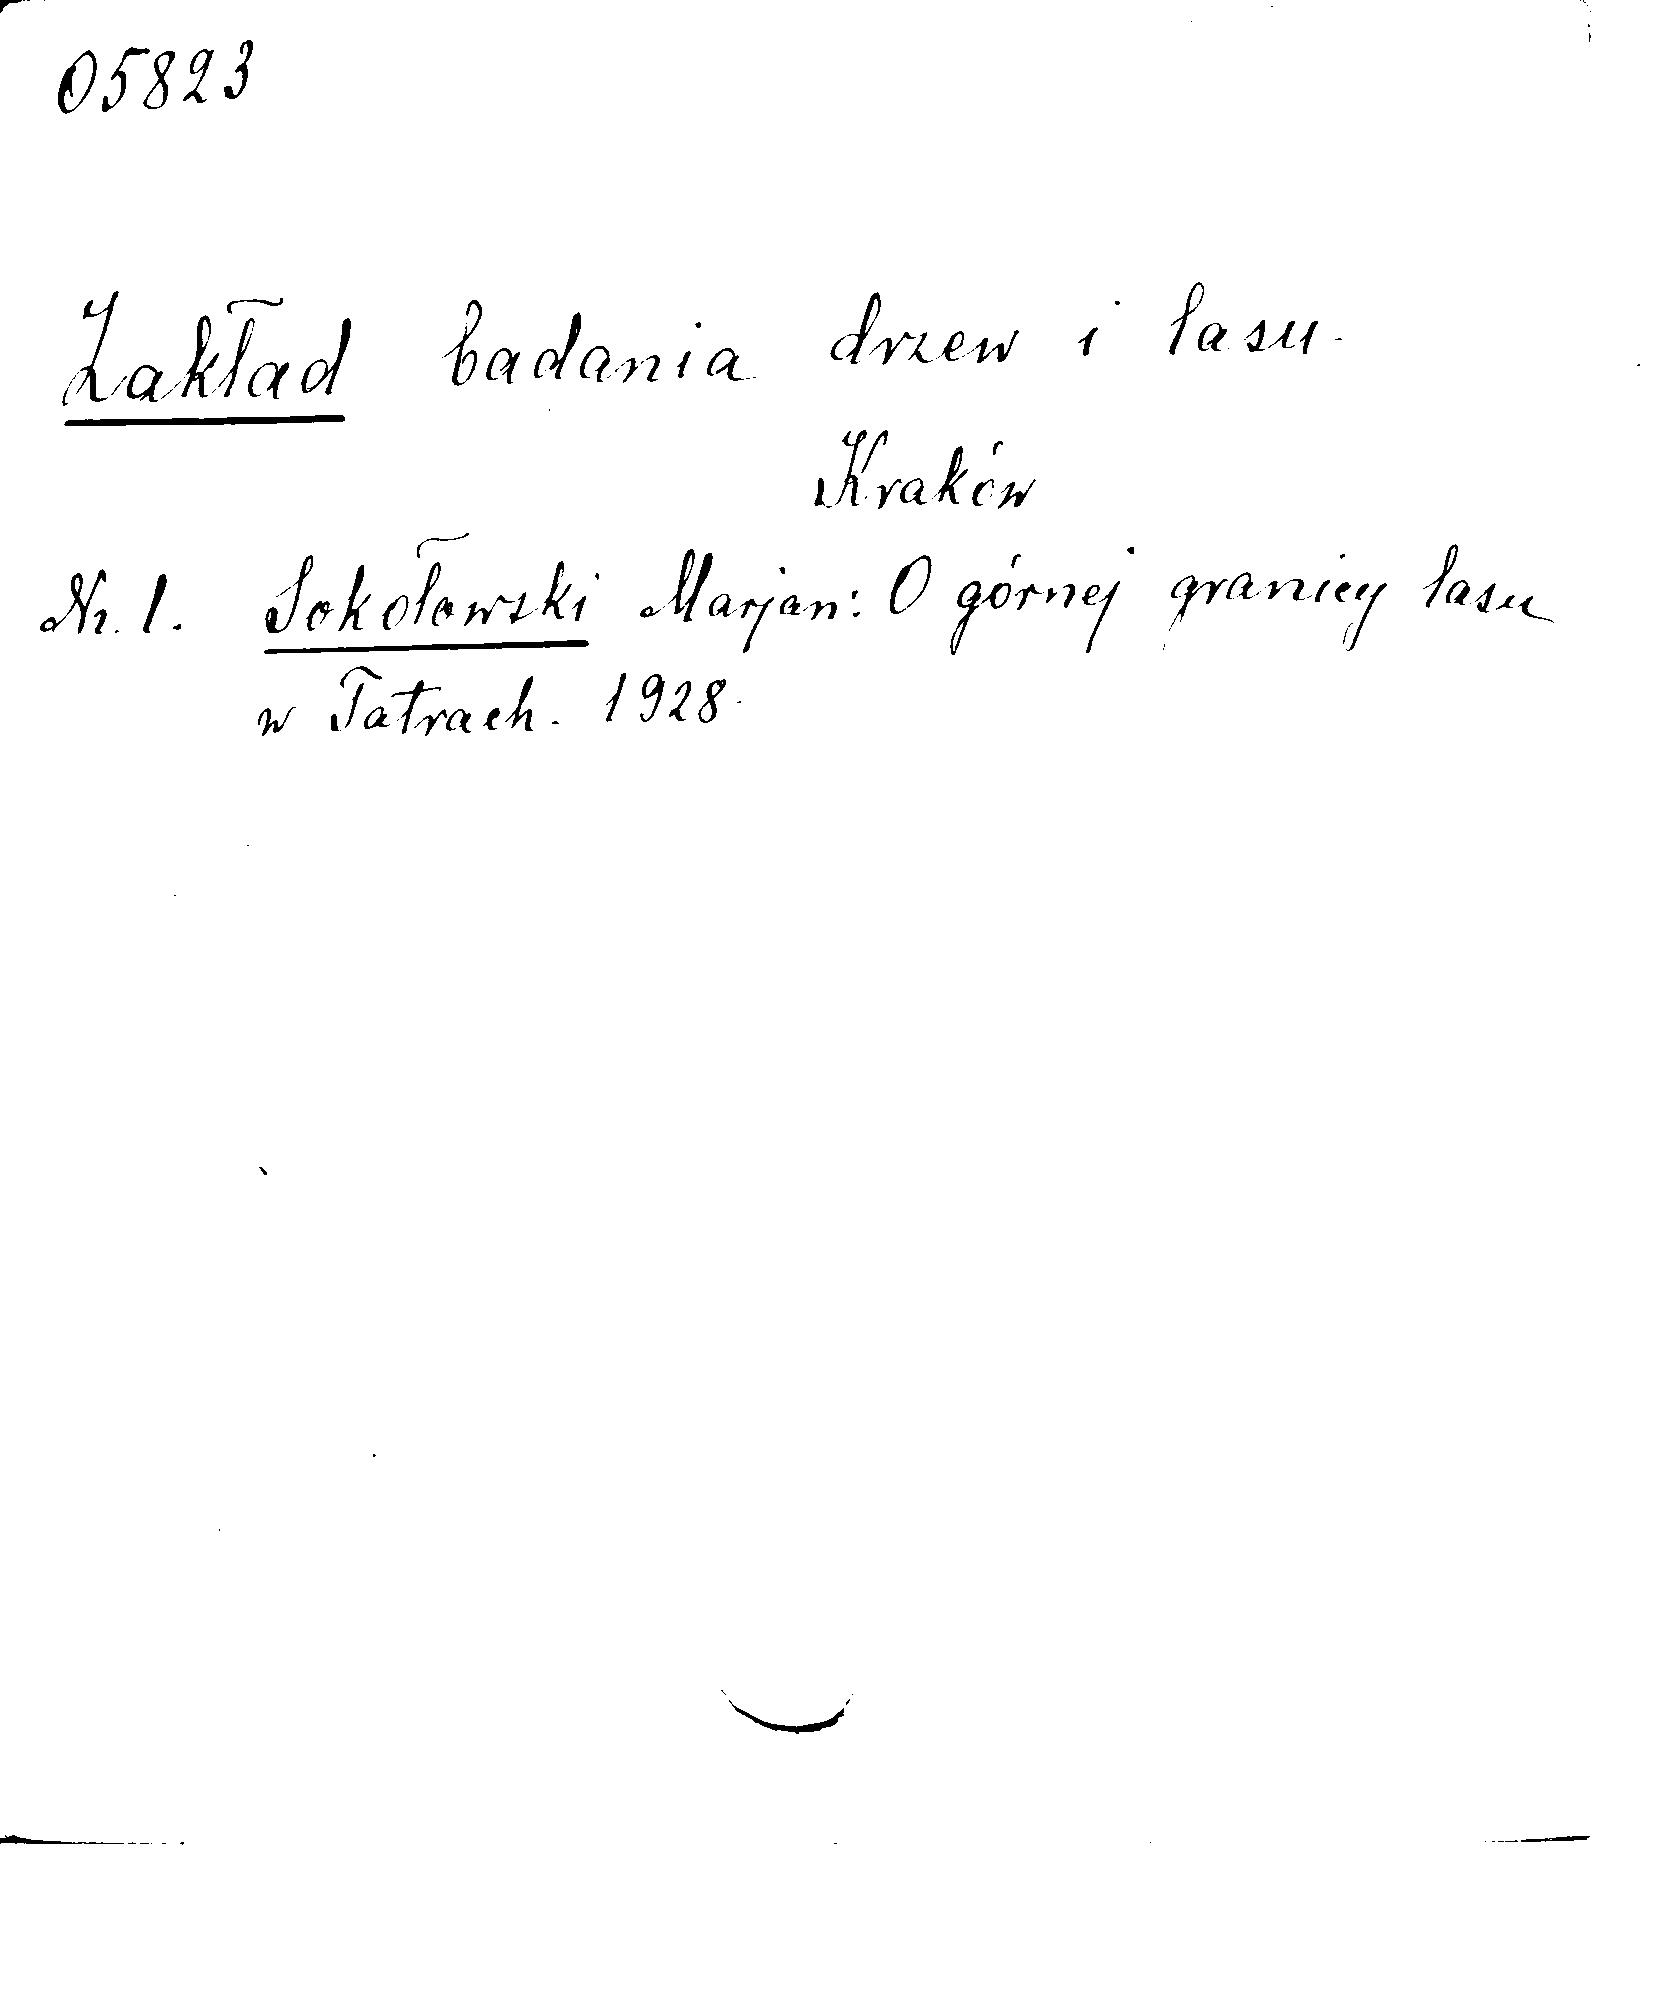 05823
Zakład badania drzew i lasu.
Kraków
Nr. 1. Sokołowski Marjan: O górnej granicy lasu
w Tatrach. 1928.